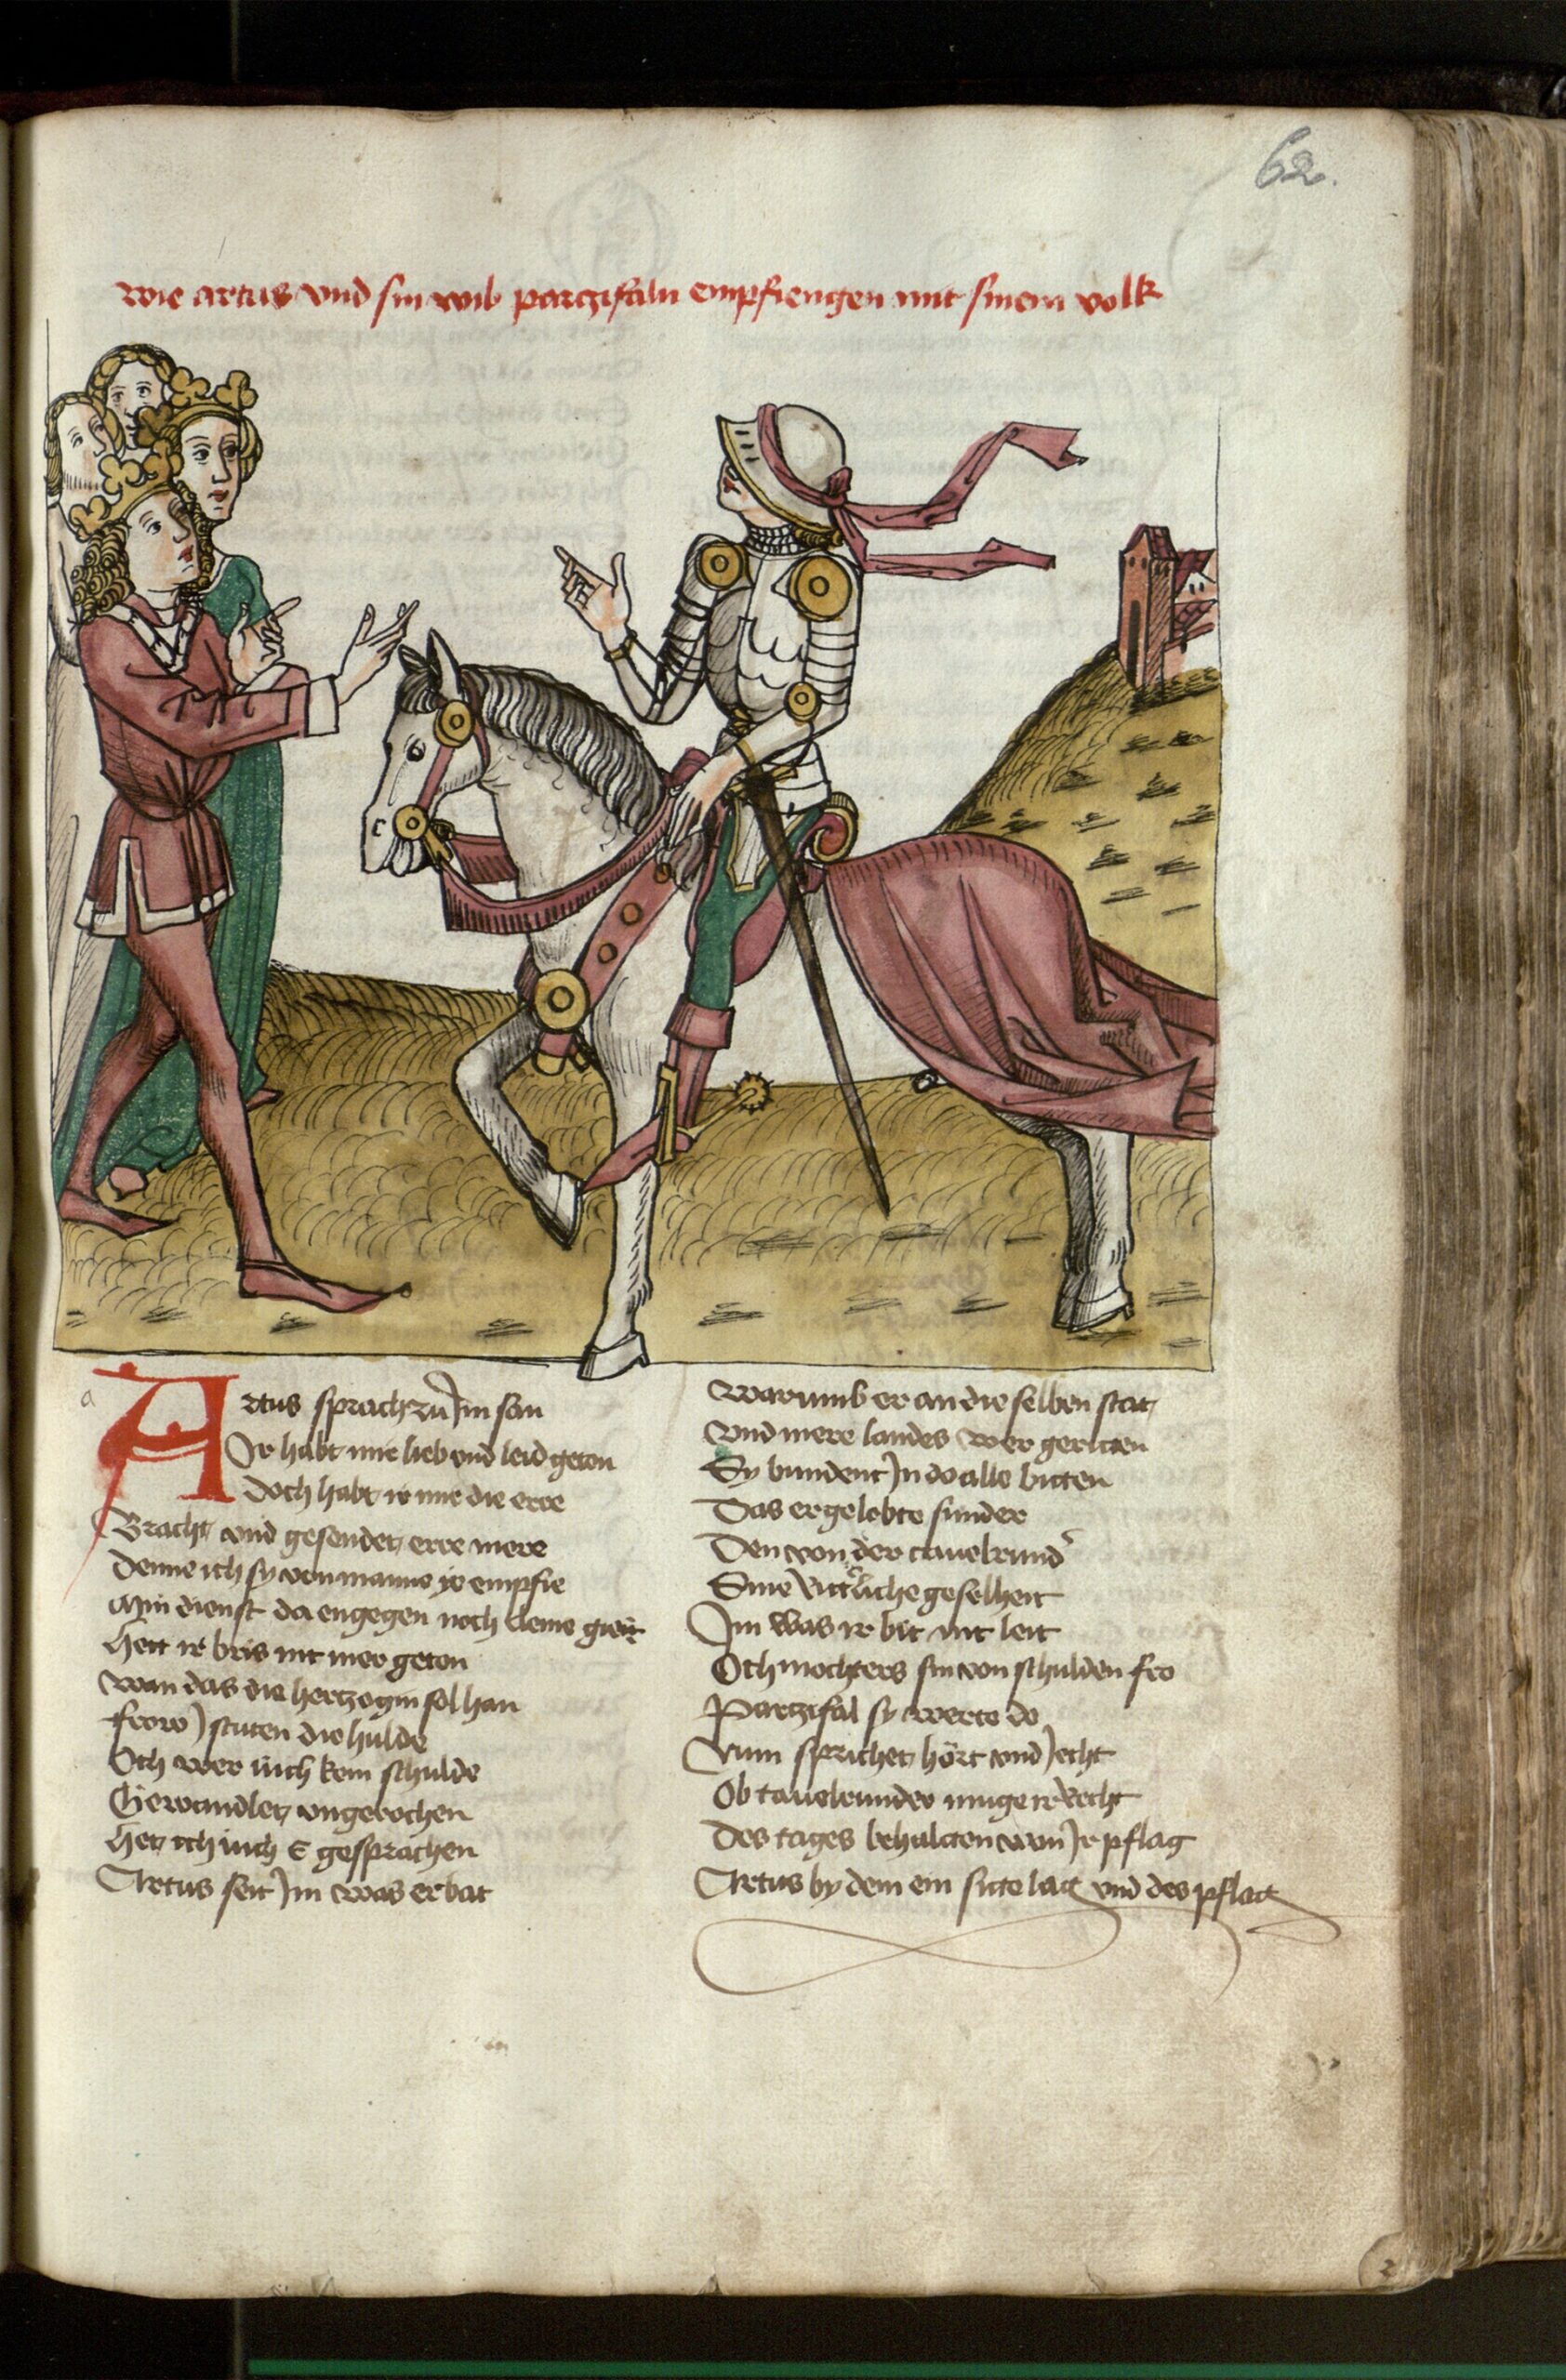 62.
wie artus vnd sin wib parczifaln empfiengen mit sinem volk
a
Artus sprach zu Im san
Ir habt mir lieb vnd leid geton
Doch habt ir mir die erre
Bracht vnd gesendet erre mere
Denne ich sy von manne ye empfie
Min dienst da engegen noch cleine
Hett ir bris nit mer geton
wan das die hertzogin sol han
frow Jstuten die hulde
Och wer üich kein schulde
Gewandlet vngerochen
Het ich üich E gesprachen
Artus seit Im was er bat
Warumb er an die selben stat
Vnd mere landes wer geritten
Sy bundent In do alle bitten
Das er gelobte sunder
Den von der tauelrund
Sine Ritterliche geselheit
Im was ir bit nit leit
Och mochters sin von schulden fro
Partzifal sy werte do
Nun sprichet hört vnd Jecht
Ob tauelrunder muge ir Recht
Des tages behalten wan Ir pflag
Artus by dem ein sitte lag vnd des pflag
2